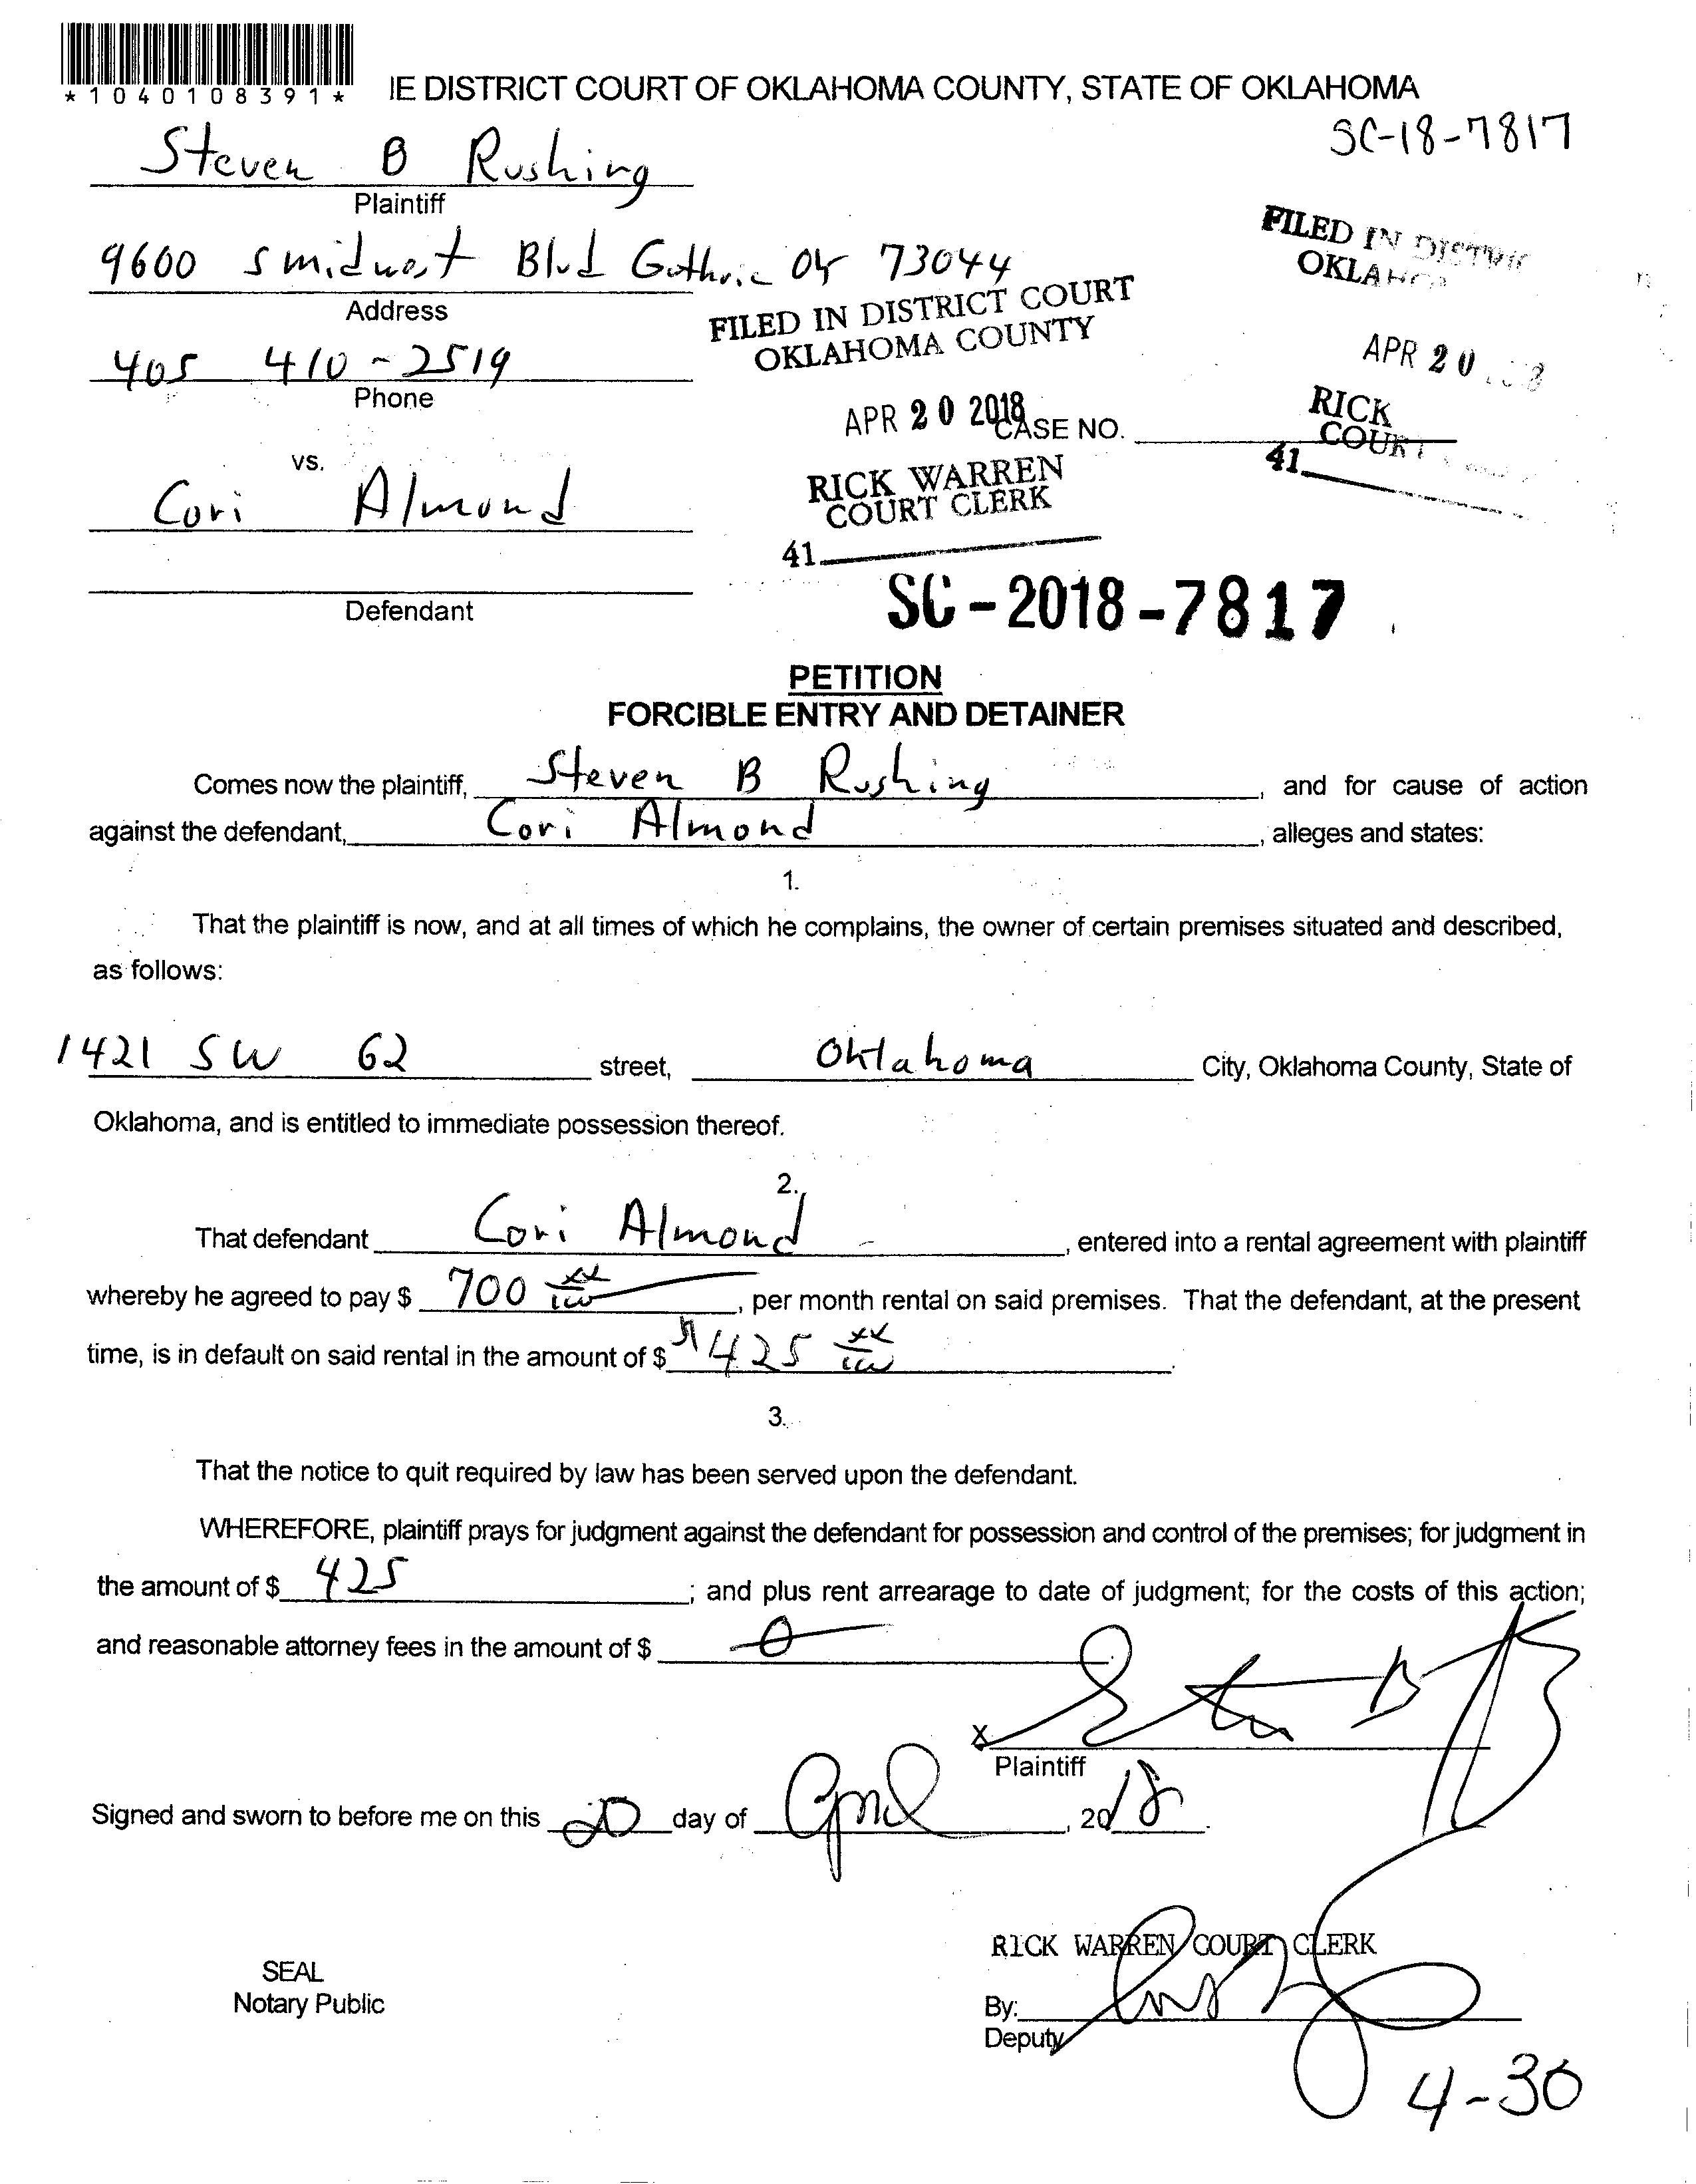 *1040108391*
IE DISTRICT COURT OF OKLAHOMA COUNTY, STATE OF OKLAHOMA
SC-18-7817
Steven B Rushing
Plaintiff
9600 S midwest Blvd Guthrie OK 73044
Address
405 410-2519
Phone
FILED IN DISTRICT COURT
OKLAHOMA COUNTY
APR 20 2018
RICK WARREN
COURT CLERK
41
FILED IN DISTRIC
OKLAHO
APR 20
RICK
COURT
41
CASE NO.
vs.
Cori Almond
Defendant
SC-2018-7817
PETITION
FORCIBLE ENTRY AND DETAINER
Comes now the plaintiff, Steven B Rushing, and for cause of action
against the defendant, Cori Almond, alleges and states:
1.
That the plaintiff is now, and at all times of which he complains, the owner of certain premises situated and described,
as follows:
1421 SW 62 street, Oklahoma City, Oklahoma County, State of
Oklahoma, and is entitled to immediate possession thereof.
2.
That defendant Cori Almond, entered into a rental agreement with plaintiff
whereby he agreed to pay $ 700 xx/100, per month rental on said premises. That the defendant, at the present
time, is in default on said rental in the amount of $ $425 xx/100.
3.
That the notice to quit required by law has been served upon the defendant.
WHEREFORE, plaintiff prays for judgment against the defendant for possession and control of the premises; for judgment in
the amount of $ 425; and plus rent arrearage to date of judgment; for the costs of this action;
and reasonable attorney fees in the amount of $ 0.
X
Plaintiff
Signed and sworn to before me on this 20 day of April, 2018.
RICK WARREN COURT CLERK
SEAL
Notary Public
By:
Deputy
4-30